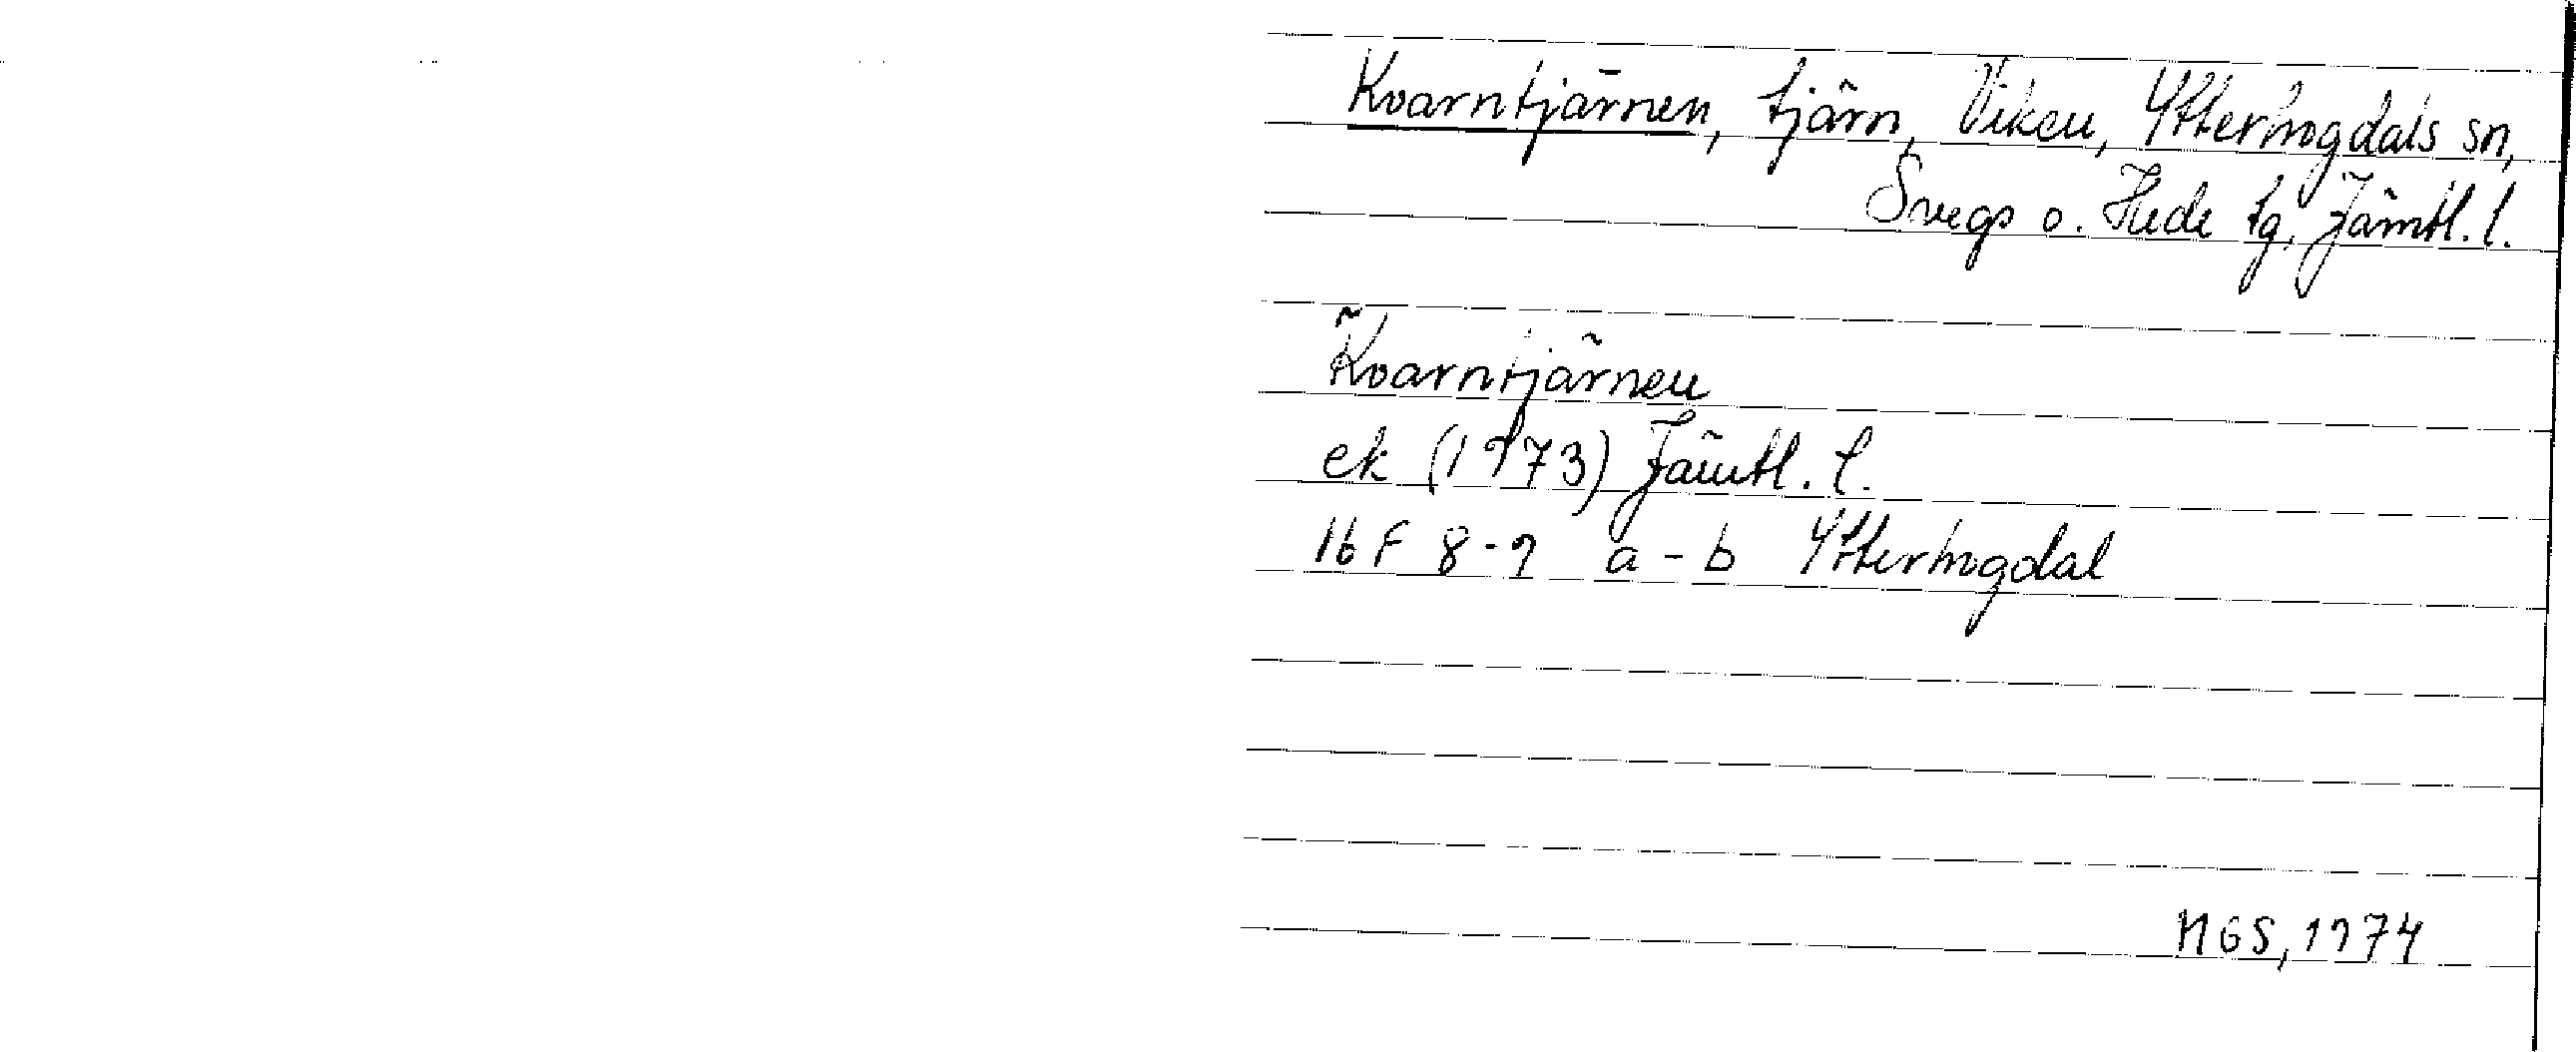 Kvarntjärnen, tjärn, Viken, Ytterhogdals sn,
Svegs o. Hede tg, Jämtl. l.
Kvarntjärnen
ek (1973) Jämtl. l.
16 F 8-9 a-b Ytterhogdal
MGS, 1974